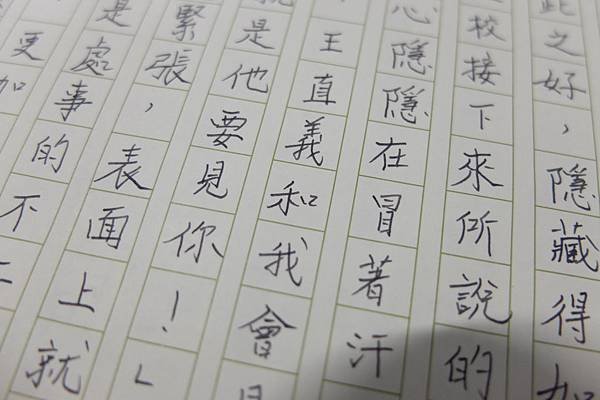 此之好，隱藏得
校接下來所說的
心隱隱在冒著汗
王直義和我會
就是他要見你！」
緊張，表面上就
是處事的不
更加